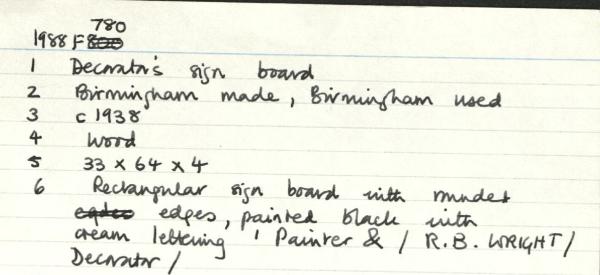 780
1988 F800
1 Decorator's sign board
2 Birmingham made, Birmingham used
3 c 1938
4 Wood
5 33 x 64 x 4
6 Rectangular sign board with rounded
edges, painted black with
cream lettering ' Painter & / R.B. WRIGHT /
Decorator /